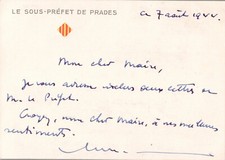 LE SOUS-PRÉFET DE PRADES
ce 7 août 1944.
Mon cher Maire,
Je vous adresse deux lettres
M. le Préfet.
Croyez, mon cher Maire, à mes meilleurs
sentiments.